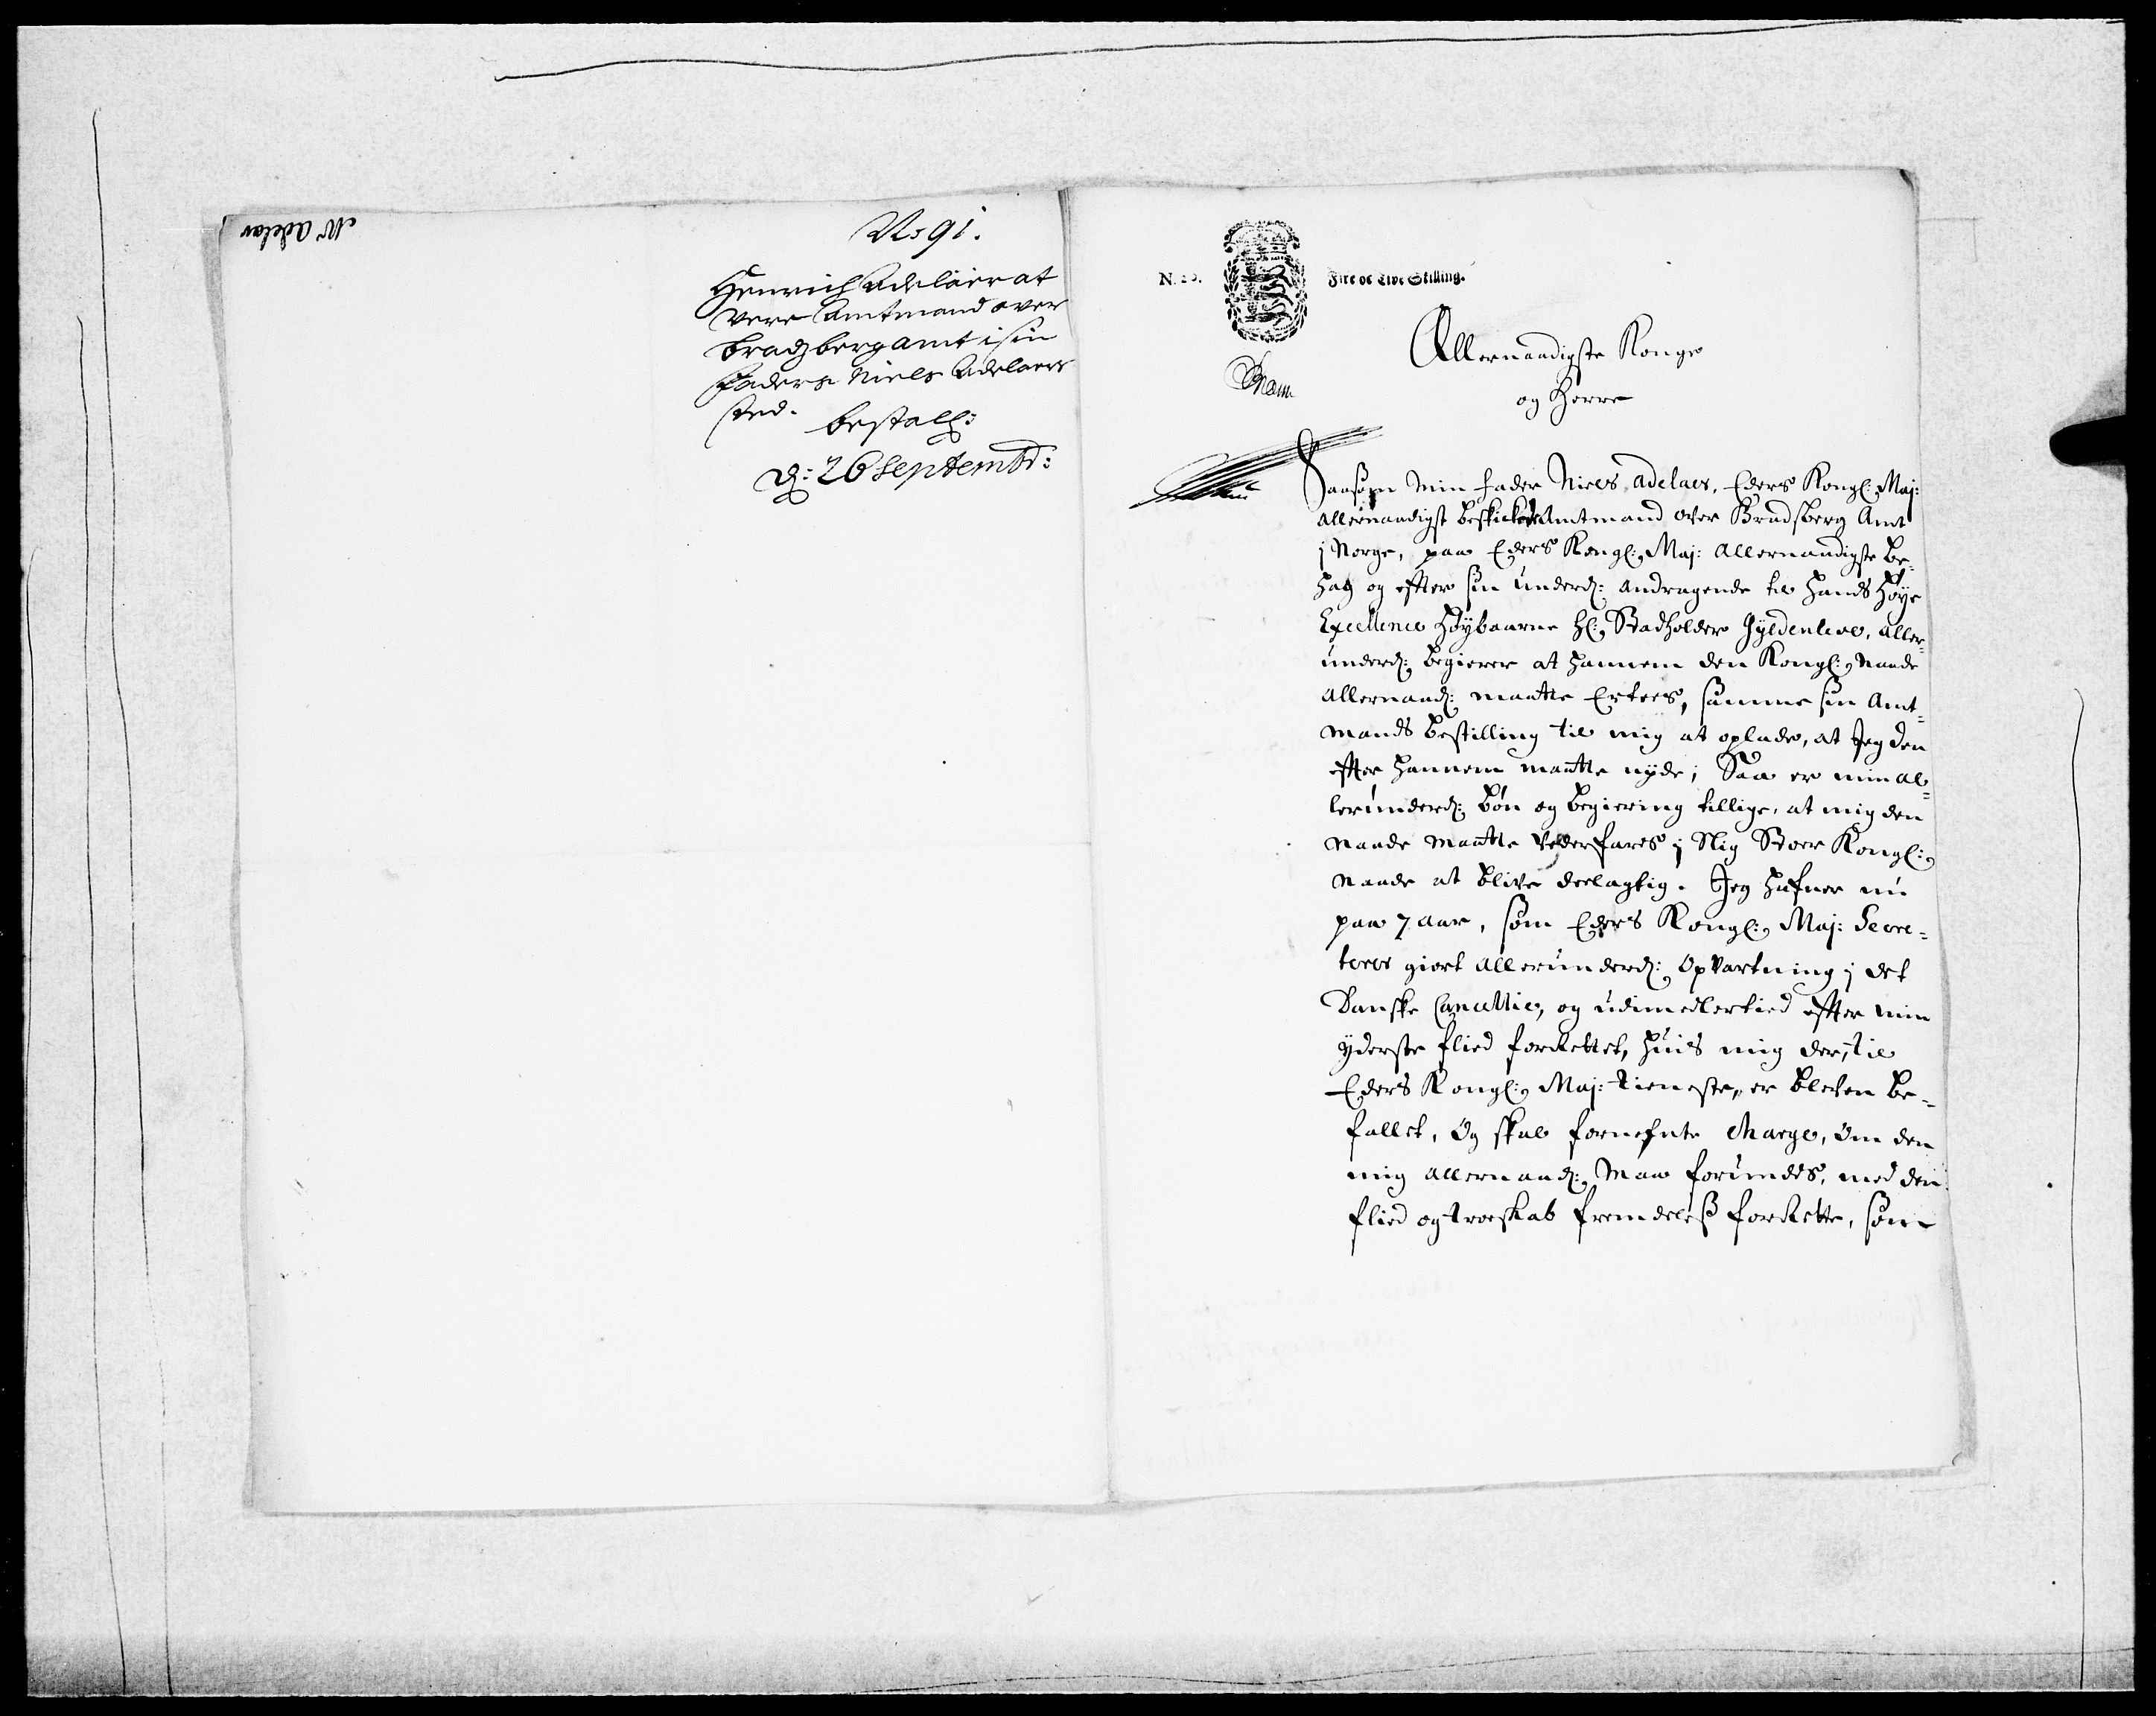 Mr Adelar
No 91.
Henrich Adelaer at
vere Amtmand over
bradsberg amt i sin
Faders Niels Adelaers
sted.
bestall:
D: 26 Septembr:
N. 20.
Fire oc Tive Skilling.
Allernaadigste Konge
og Herre
Saasom Min fader Niels Adelaer, Eders Kongl: Maj:
allernaadigst beskickede Amtmand over Bradsberg Amt
j Norge, paa Eders Kongl: Maj: allernaadigste be-
hag og effter sin underd: andragende til Hands Høye
Excellence Høybaarne Hl: Stadholder Gyldenleve, aller-
underd: begierer at hannem den Kongl: Naade
allernaad: maatte Ertees, samme sin Amt-
mands bestilling til mig at oplade, at Jeg den
effter hannem maatte nyde; Saa er min al-
lerunderd: bøn og begiering tillige, at mig den
Naade maatte Vederfares j slig Stoer Kongl:
Naade at blive deelagtig. Jeg hafver nu
paa 7 aar, som Eders Kongl: Maj: Secre-
terer giort allerunderd: Opvartning j det
Danske Cancellie, og udimedlertied effter min
yderste flied forrettet, huis mig der, til
Eders Kongl: Maj: tieneste, er bleven be-
fallet, Og skal fornefnte Charge, om den
mig allernaad: Maa forundes, med den
flied og troeskab fremdeelß forrette, som